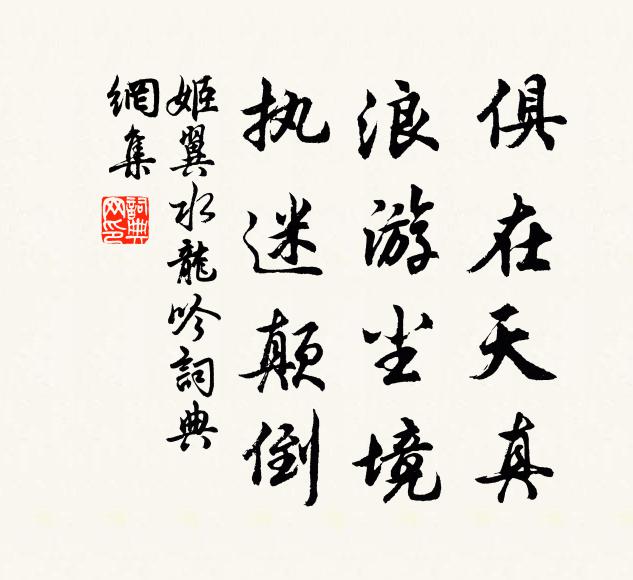 俱在天真
浪游尘境
执迷颠倒
姬翼水龍吟詞典
網集
詞典网印